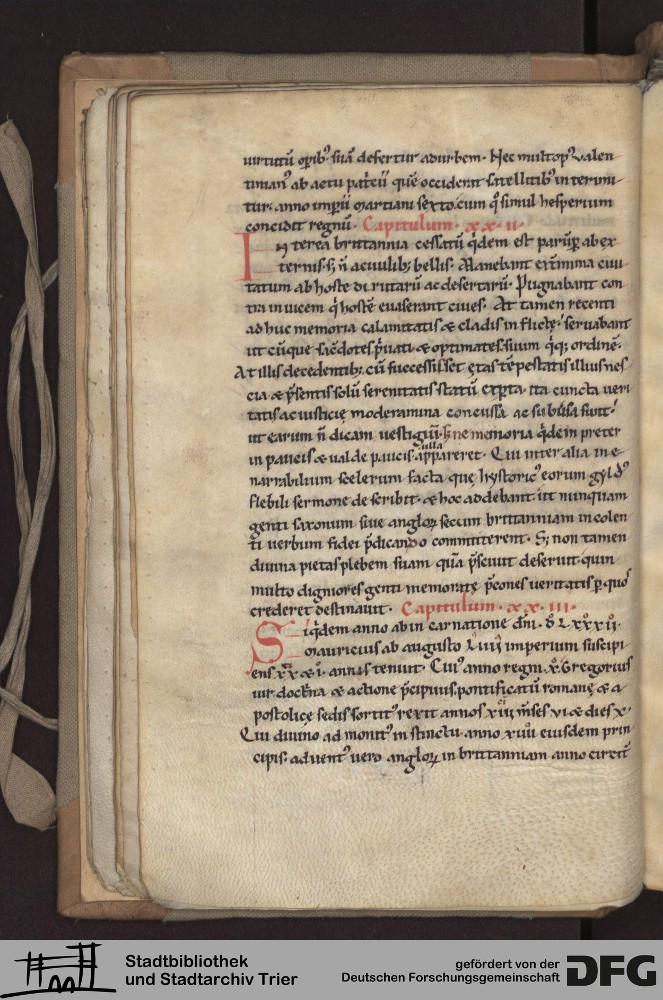 uirtutū oꝑibꝰ suā defertur ad urbem. Nec multopꝰ valen
tinianꝰ ab aetii patcii quē occiderat satellitibꝰ interimi
tur. anno imperii martiani sexto. cum qͦ simul hesperium
concidit regnū. Capitulum. xx. ii.
In terea brittannia cessatū qͥdem est parūꝑ ab ex
ternis. sꝫ ñ a ciuilibꝫ bellis. Manebant ext̄minia ciui
tatum ab hoste dirutarū ac desertarū. Pugnabant con
tra inuicem qͥ hostē euaserant ciues. At tamen recenti
ad huc memoria calamitatis & cladis inflictę. seruabant
ut cūque sac̄dotes p̄uati & optimates. suum qͥqꝫ ordinē.
At illis decedentibꝫ. cū successisset ętas tēpestatis illius nes
cia & p̄sentis solū serenitatis statū exꝑta. ita cuncta ueri
tatis ac iusticię moderamina concussa ac subuersa sunt.
ut earum ñ dicam uestigiū. sꝫ ne memoria qͥdem in preter
in paucis & ualde paucis ulla appareret. Qui inter alia in e
narrabilium scelerum facta que hystoricꝰ eorum gyldꝰ
flebili sermone describit. & hoc addebant ut nunquam
genti saxonum siue angloꝝ secum brittanniam incolen
ti uerbum fidei p̄dicando committerent. Sꝫ non tamen
diuina pietas plebem suam quā p̄sciuit deseruit quin
multo digniores genti memoratę p̄cones ueritatis ꝑ quos
crederet destinauit. Capitulum. xx. iii.
Siqͥdem anno ab incarnatione dn̄i. dͦ lxxxii.
mauricius ab augusto l iiii imperium suscipi
ens xx & i. annis tenuit. Cuiꝰ anno regni x. Gregorius
uir doctrina & actione p̄cipuus. pontificatū romanę & a
postolicę sedis sortitꝰ rexit annos xiii m̄ses vi & dies x.
Qui diuino admonitꝰ instinctu. anno xiiii eiusdem prin
cipis. aduentꝰ uero angloꝝ in brittanniam anno circit̄
Stadtbibliothek
und Stadtarchiv Trier
gefördert von der
Deutschen Forschungsgemeinschaft
DFG